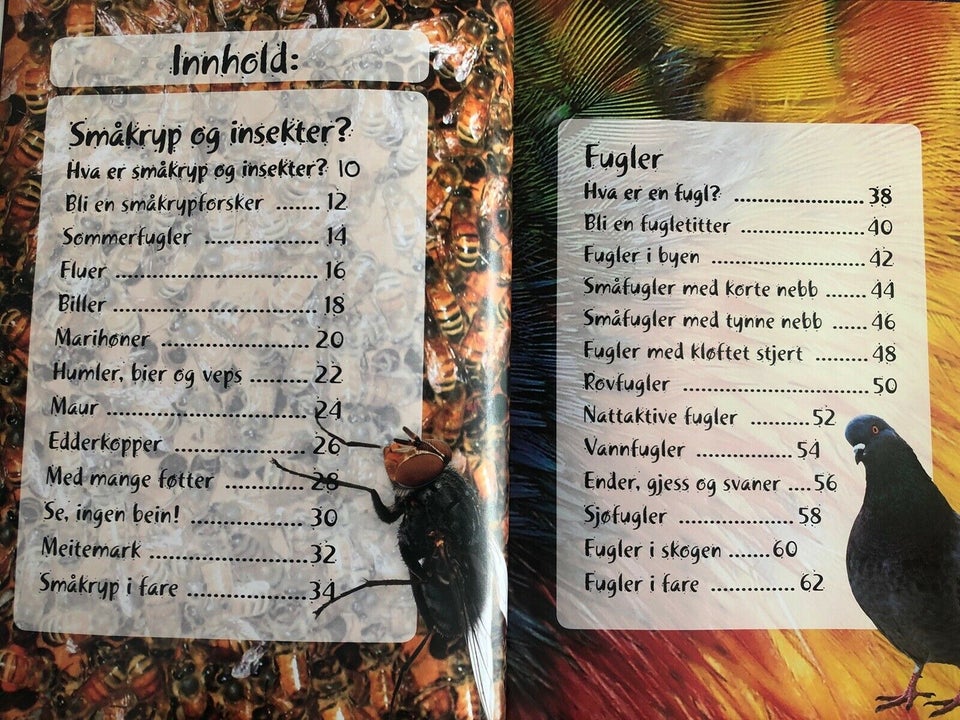 Innhold:
Småkryp og insekter?
Hva er småkryp og insekter? 10
Bli en småkrypforsker ....... 12
Sommerfugler .................. 14
Fluer ................................ 16
Biller ................................ 18
Marihøner ....................... 20
Humler, bier og veps ......... 22
Maur ............................... 24
Edderkopper .................... 26
Med mange føtter ............ 28
Se, ingen bein! ................. 30
Meitemark ....................... 32
Småkryp i fare .................. 34
Fugler
Hva er en fugl? ..................... 38
Bli en fugletitter .................... 40
Fugler i byen ......................... 42
Småfugler med korte nebb ....... 44
Småfugler med tynne nebb ...... 46
Fugler med kløftet stjert ......... 48
Rovfugler .............................. 50
Nattaktive fugler .......... 52
Vannfugler ................ 54
Ender, gjess og svaner .... 56
Sjøfugler ................... 58
Fugler i skogen ....... 60
Fugler i fare ............ 62